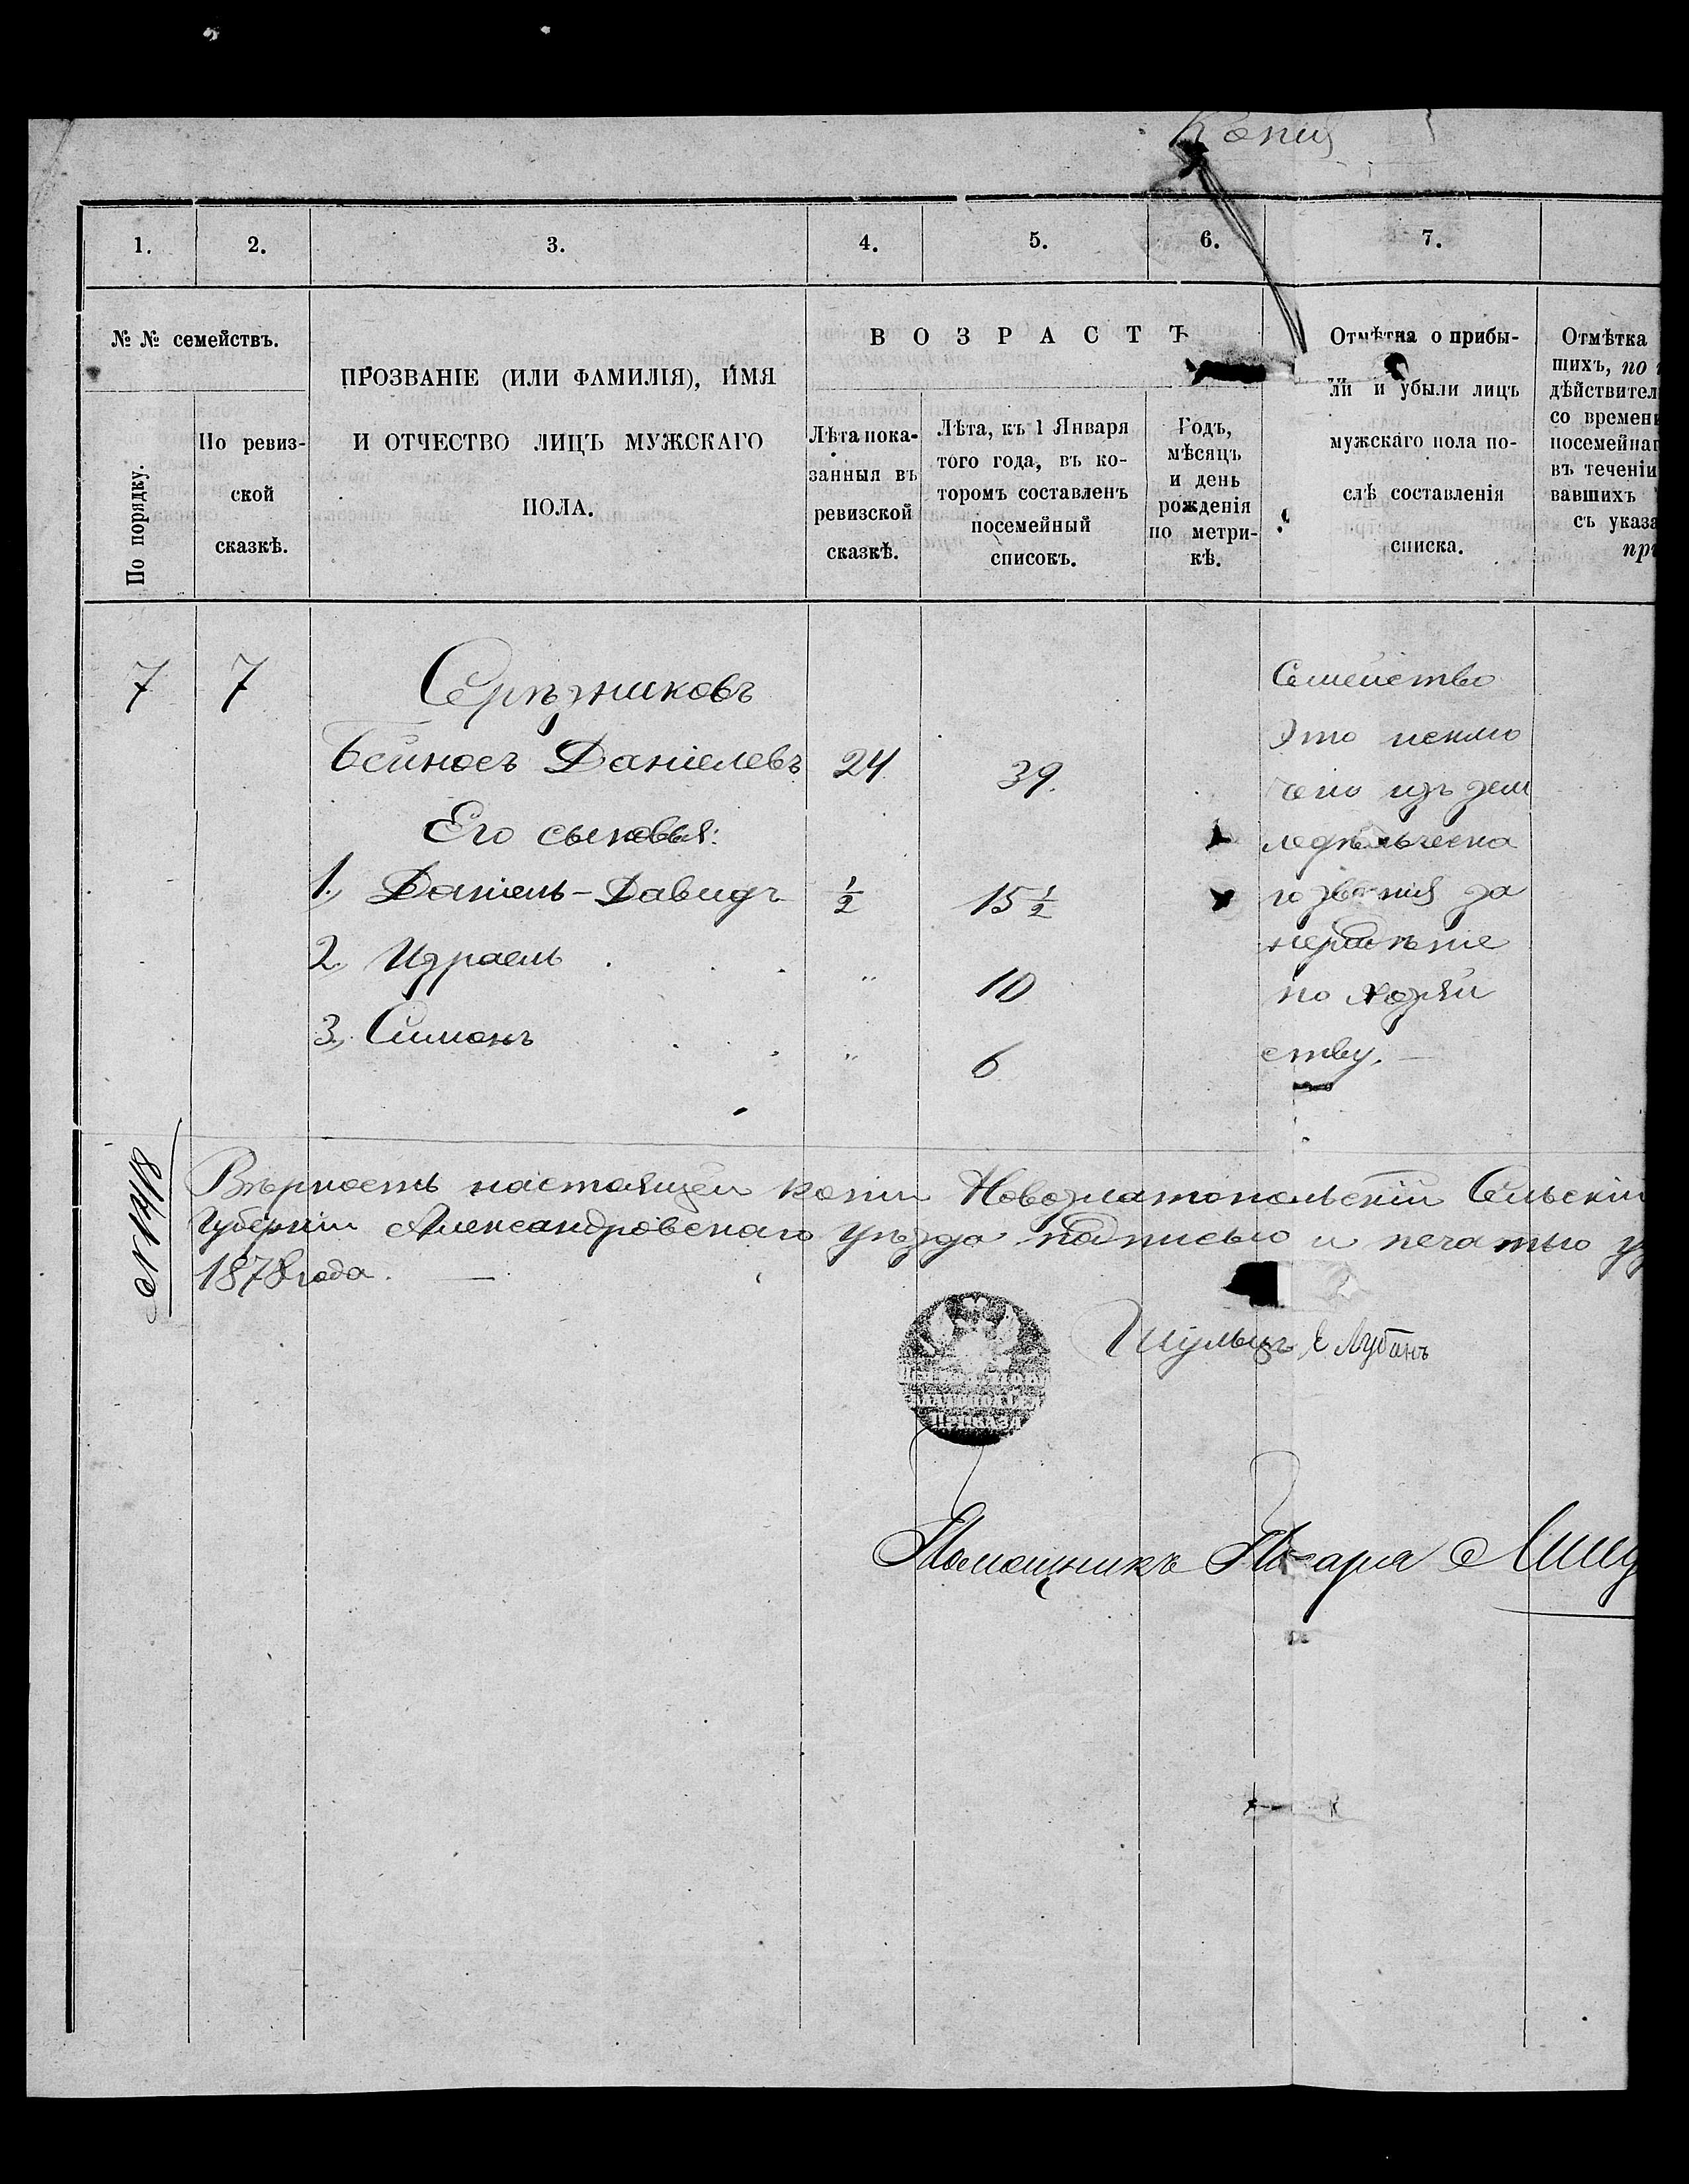 Копія
1. 2. 3. 4. 5. 6. 7.
№ № семействъ.
По порядку.
По ревиз-
ской
сказкѣ.
ПРОЗВАНІЕ (ИЛИ ФАМИЛІЯ), ИМЯ
И ОТЧЕСТВО ЛИЦЪ МУЖСКАГО
ПОЛА.
ВОЗРАСТЪ
Лѣта пока-
занныя въ
ревизской
сказкѣ.
Лѣта, къ 1 Января
того года, въ ко-
торомъ составленъ
посемейный
списокъ.
Годъ,
мѣсяцъ
и день
рожденія
по метри-
кѣ.
Отмѣтка о прибы-
ли и убыли лицъ
мужскаго пола по-
слѣ составленія
списка.
Отмѣтка
шихъ, по
дѣйствител
со времени
посемейнаг
въ теченіи
вавшихъ
съ указа
при
7 7 Серѣзниковъ
Бейносъ Даніелевъ 24 39.
Его сыновья:
1., Даніель-Давидъ ½ 15 ½
2., Израель . . . " 10
3., Симонъ . . " 6
Семейство
это исклю
чено изъ зем
ледѣльческа
го званія за
нерадѣніе
по хозяй
ству. —
№ 1248
Вѣрность настоящей копіи Новозлатопольскій Сельскій
Губерніи Александровскаго уѣзда подписью и печатью
1878 года. —
Шульцъ Е Лубанъ
ПРИКАЗА
Помощникъ Писаря